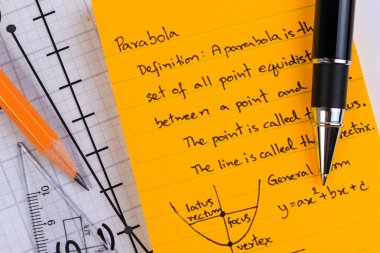 Parabola
Definition: A parabola is th
set of all point equidist
between a point and
The point is called t us.
The line is called th ectrix.
General orm
y=ax²+bx+c
latus
rectum
focus
vertex
10
9